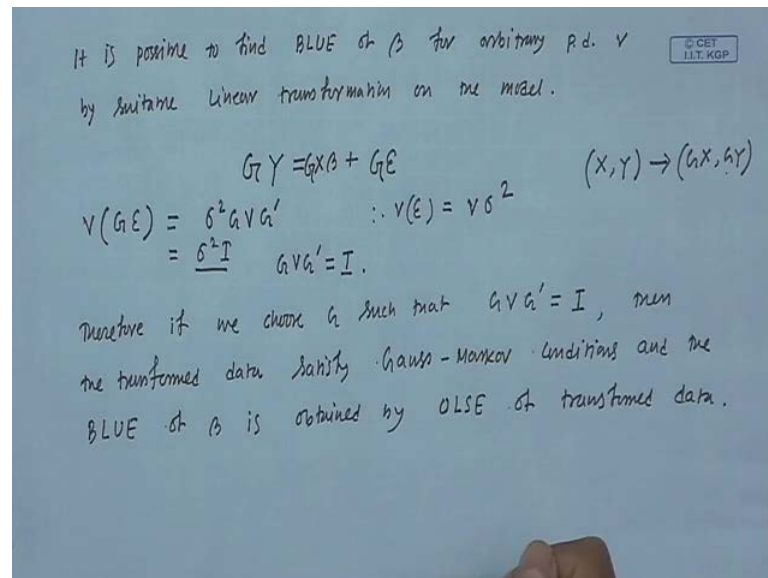 It is possible to find BLUE of β for arbitrary P.d. V
© CET
I.I.T. KGP
by suitable Linear transformation on the model.
GY = GXβ + Gε
(X,Y) → (GX, GY)
V(Gε) = σ²GVG' ∴ V(ε) = Vσ²
= σ²I GVG' = I.
Therefore if we choose G such that GVG' = I, then
the transformed data satisfy Gauss-Markov Conditions and the
BLUE of β is obtained by OLSE of transformed data.